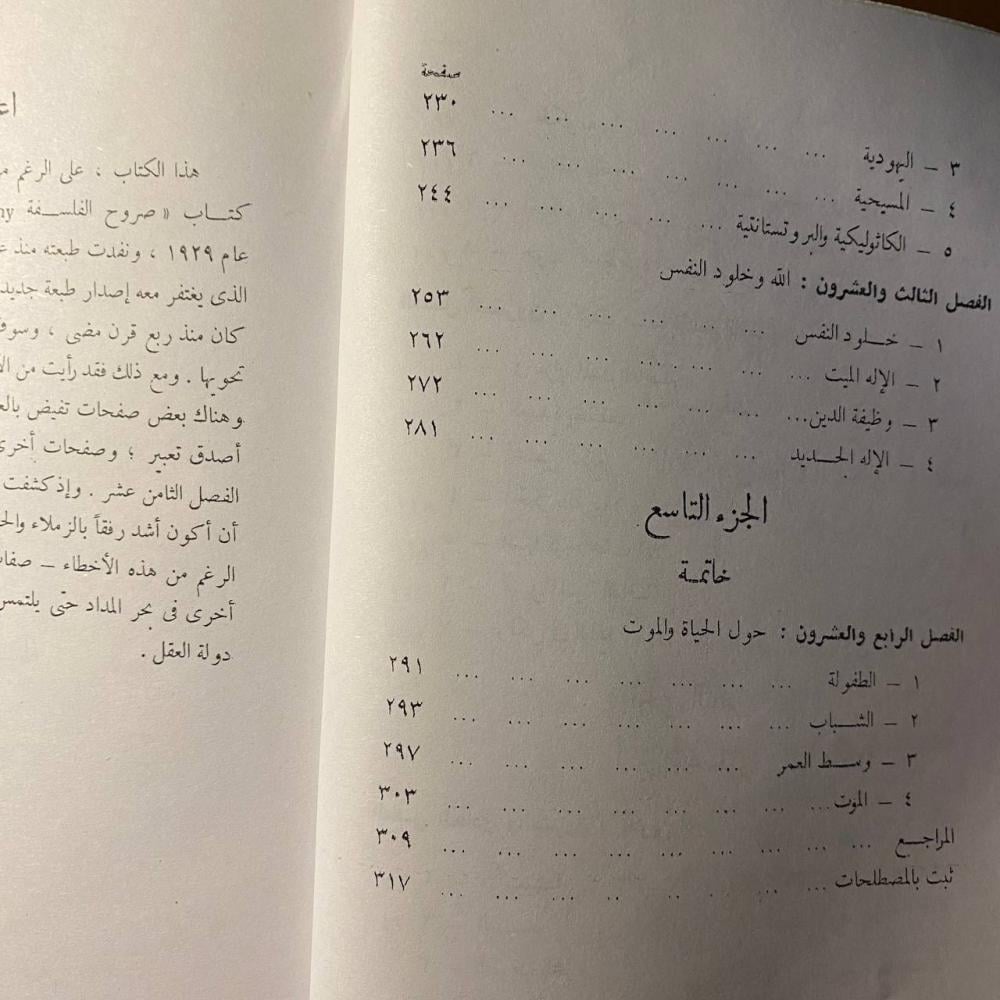 صفحة
٣ – اليهودية ... ... ... ... ... ... ... ٢٣٠
٤ – المسيحية ... ... ... ... ... ... ... ٢٣٦
٥ – الكاثوليكية والبروتستانتية ... ... ... ... ... ٢٤٤
الفصل الثالث والعشرون : الله وخلود النفس
١ – خــلود النفس ... ... ... ... ... ... ٢٥٣
٢ – الإله الميت ... ... ... ... ... ... ... ٢٦٢
٣ – وظيفة الدين... ... ... ... ... ... ... ٢٧٢
٤ – الإله الجــديد ... ... ... ... ... ... ٢٨١
الجزء التاسع
خاتمـة
الفصل الرابع والعشرون : حول الحياة والموت
١ – الطفولة ... ... ... ... ... ... ... ٢٩١
٢ – الشــباب ... ... ... ... ... ... ... ٢٩٣
٣ – وســط العمر ... ... ... ... ... ... ٢٩٧
٤ – الموت... ... ... ... ... ... ... ... ٣٠٣
المراجــع ... ... ... ... ... ... ... ... ٣٠٩
ثبت بالمصطلحات ... ... ... ... ... ... ... ٣١٧
هذا الكتاب ، على الرغم
كتــاب « صروح الفلســفة
عام ١٩٢٩ ، ونفدت طبعته منذ
الذى يغتفر معه إصدار طبعة
كان منذ ربع قرن مضى ، وسوف
تحويها . ومع ذلك فقد رأيت من
وهناك بعض صفحات تفيض
أصدق تعبير ؛ وصفحات أخرى
الفصل الثامن عشر . وإذ كشفت
أن أكون أشد رفقاً بالزملاء
الرغم من هذه الأخطاء –
أخرى فى بحر المداد حتى يلتمس
دولة العقل .